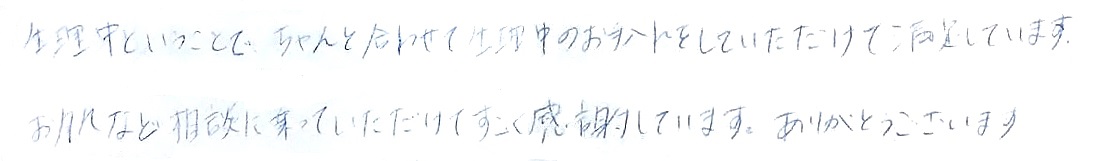 生理中ということで、ちゃんと合わせて生理中のお手入れをしていただけて満足しています。
お肌など相談に乗っていただけてすごく感謝しています。ありがとうございます